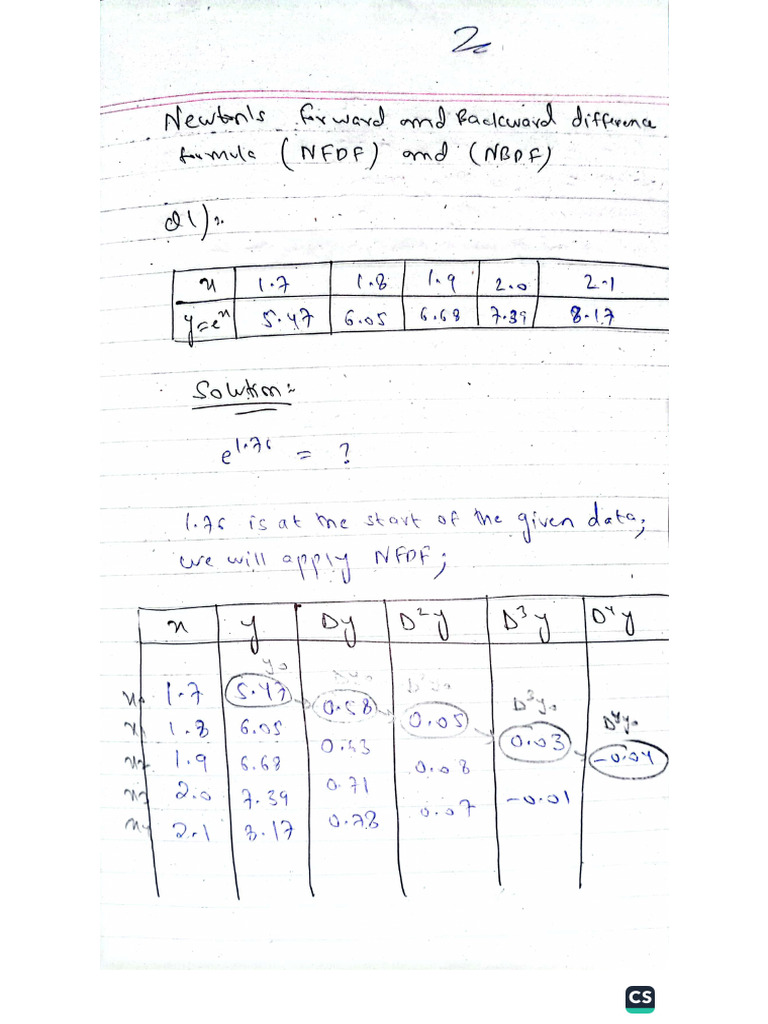 2
Newton's forward and Backward difference
formula (NFDF) and (NBDF)
Q1):
x 1.7 1.8 1.9 2.0 2.1
y=e^x 5.47 6.05 6.68 7.39 8.17
Solution:
e^1.76 = ?
1.76 is at the start of the given data,
we will apply NFDF;
x y Dy D²y D³y D⁴y
y₀ Dy₀ D²y₀ D³y₀ D⁴y₀
x₀ 1.7 5.47 0.58 0.05 0.03 -0.04
x₁ 1.8 6.05 0.63 0.08 -0.01
x₂ 1.9 6.68 0.71 0.07
x₃ 2.0 7.39 0.78
x₄ 2.1 8.17
CS